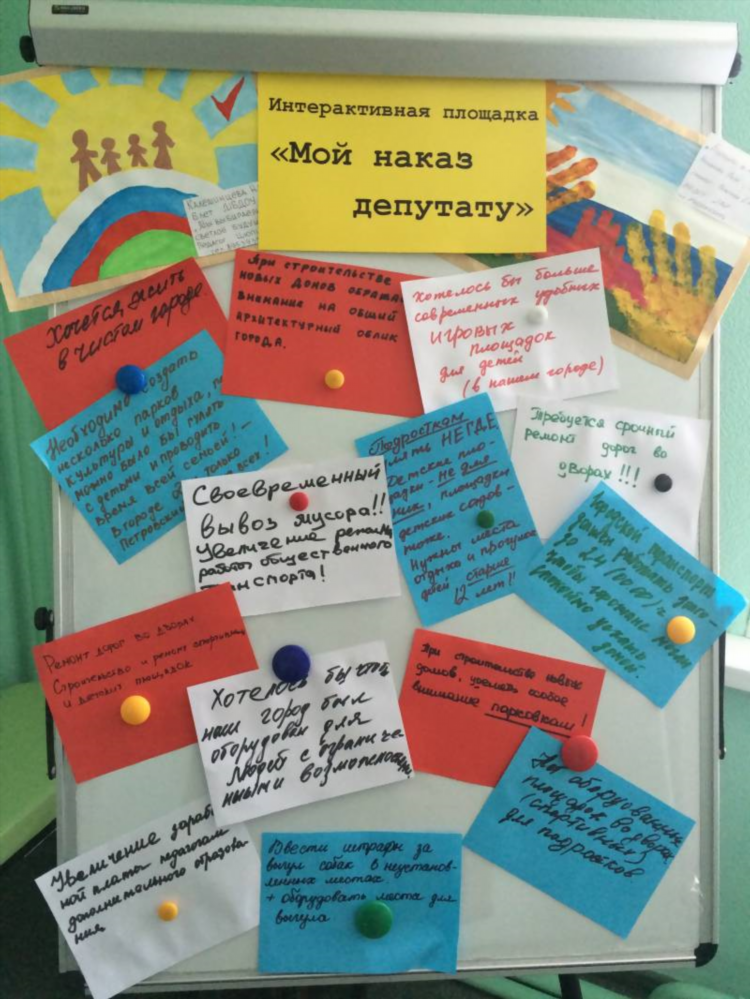 Интерактивная площадка
«Мой наказ
депутату»
Хочется жить
в чистом городе.
При строительстве
новых домов
внимание на общий
архитектурный облик
города.
Хотелось бы больше
современных удобных
игровых
площадок
для детей
(в нашем городе)
Необходимо создать
несколько парков
культуры и отдыха,
можно было бы гулять
с детьми и проводить
время всей семьёй!
В городе только
Петровский всех!
Своевременный
вывоз мусора!!
Увеличение
работы общественного
транспорта!
Подросткам
НЕГДЕ
Детские пло-
щадки - не для
них, площадки
детские садов -
тоже.
Нужны места
отдыха и прогулок
детей старше
12 лет!!
Требуется срочный
ремонт дорог во
дворах!!!
Городской транспорт
должен работать
до 24 (00:00)
чтобы горожане могли
спокойно уехать
домой.
Ремонт дорог во дворах
Строительство и ремонт спортивных
и детских площадок
Хотелось бы чтоб
наш город был
оборудован для
людей с ограниче
нными возможностями
При строительстве новых
домов, уделять особое
внимание парковкам!
оборудованных
площадок во дворах
(спортивных)
для подростков.
Увеличение зарабо
ной платы педагогам
дополнительного образова-
ния.
Ввести штрафы за
выгул собак в неустанов-
ленных местах.
+ оборудовать места для
выгула